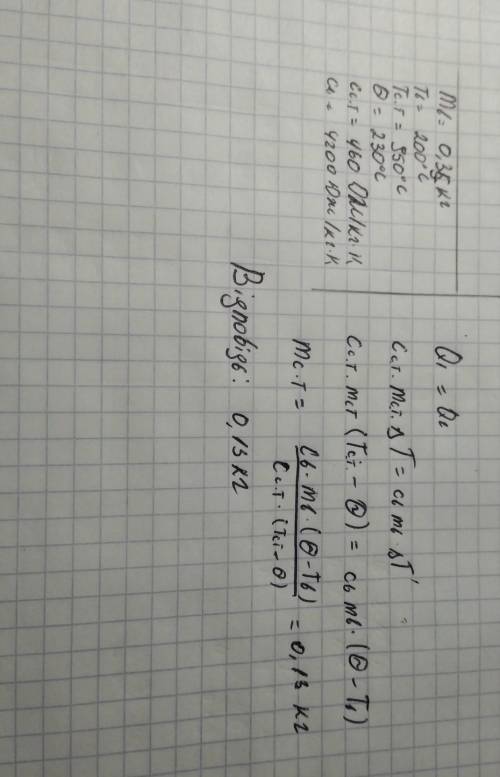 mв = 0,35 кг
Tв = 200°C
Tс.т = 950°C
Θ = 230°C
cс.т = 460 Дж/кг·К
cв = 4200 Дж/кг·К
Q₁ = Q₂
cс.т. mст. ΔT = cв mв · ΔT'
cс.т. mст (Tст - Θ) = cв mв · (Θ - Tв)
mс.т = cв · mв · (Θ - Tв) / cс.т · (Tст - Θ) = 0,13 кг
Відповідь: 0,13 кг